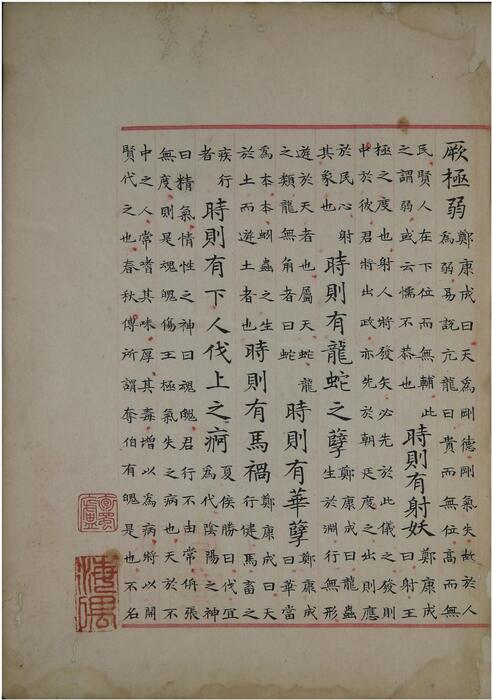 厥極弱鄭康成曰天為剛德剛氣失故於人
為弱易說亢龍曰貴而無位高而無
民賢人在下位而無輔此
之謂弱或云懦不恭也
時則有射妖鄭康成
曰射王
極之度也射人將發矢必先於此儀之發則
中於彼君將出政亦先於朝廷度之出則應
於民心射
其象也
時則有龍蛇之孽鄭康成曰龍蟲
生於淵行無形
遊於天者也屬天蛇龍
之類龍無角者曰蛇
時則有華孽鄭康成
曰華當
為本本蚓蟲之生
於土而遊土者也
時則有馬禍鄭康成曰天
行健馬畜之
疾行
者
時則有下人伐上之痾夏侯勝曰代宜
為代陰陽之神
曰精氣情性之神曰魂魄君行不由常侜張
無度則是魂魄傷王極氣失之病也天於不
中之人常嗜其味厚其毒增以為病將以開
賢代之也春秋傳所謂奪伯有魄是也不名